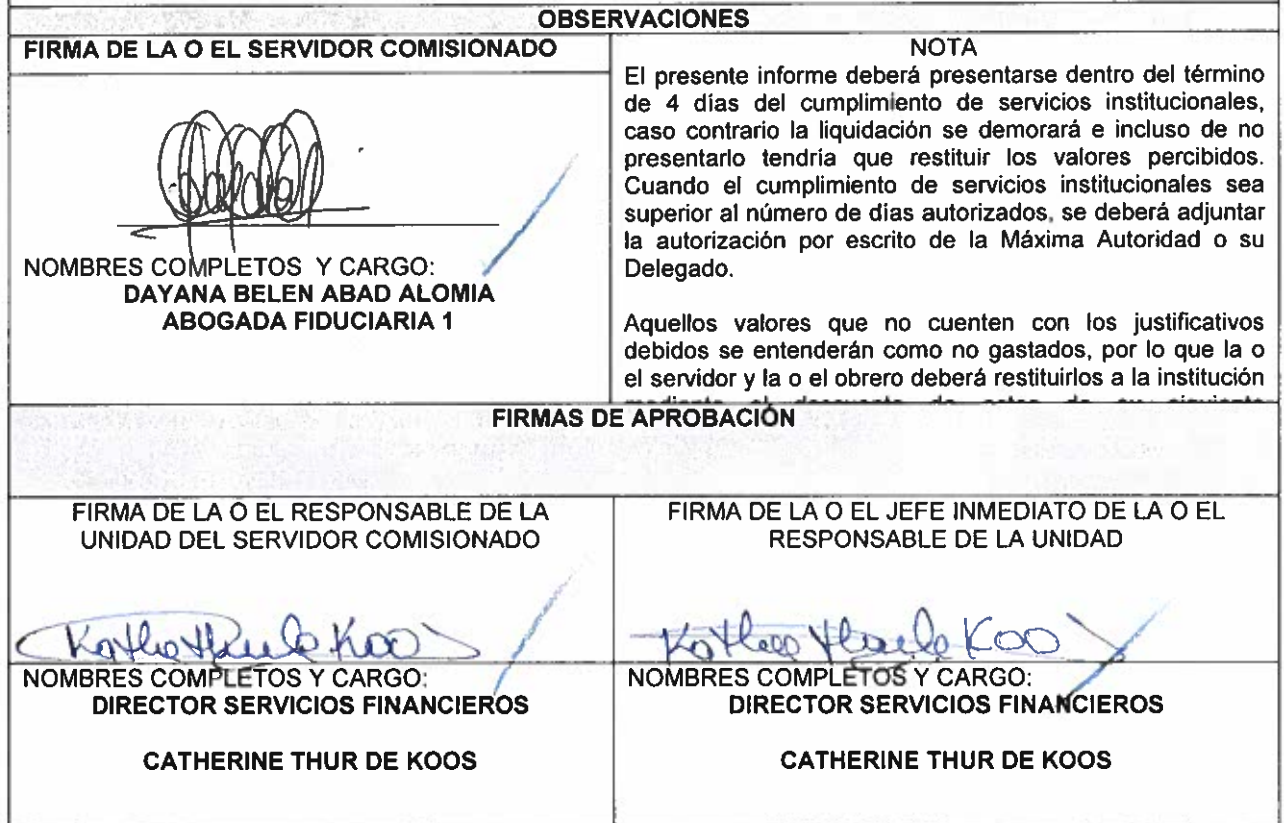 OBSERVACIONES
FIRMA DE LA O EL SERVIDOR COMISIONADO
NOMBRES COMPLETOS Y CARGO:
DAYANA BELEN ABAD ALOMIA
ABOGADA FIDUCIARIA 1
NOTA
El presente informe deberá presentarse dentro del término
de 4 días del cumplimiento de servicios institucionales,
caso contrario la liquidación se demorará e incluso de no
presentarlo tendría que restituir los valores percibidos.
Cuando el cumplimiento de servicios institucionales sea
superior al número de días autorizados, se deberá adjuntar
la autorización por escrito de la Máxima Autoridad o su
Delegado.
Aquellos valores que no cuenten con los justificativos
debidos se entenderán como no gastados, por lo que la o
el servidor y la o el obrero deberá restituirlos a la institución
FIRMAS DE APROBACIÓN
FIRMA DE LA O EL RESPONSABLE DE LA
UNIDAD DEL SERVIDOR COMISIONADO
NOMBRES COMPLETOS Y CARGO:
DIRECTOR SERVICIOS FINANCIEROS
CATHERINE THUR DE KOOS
FIRMA DE LA O EL JEFE INMEDIATO DE LA O EL
RESPONSABLE DE LA UNIDAD
NOMBRES COMPLETOS Y CARGO:
DIRECTOR SERVICIOS FINANCIEROS
CATHERINE THUR DE KOOS